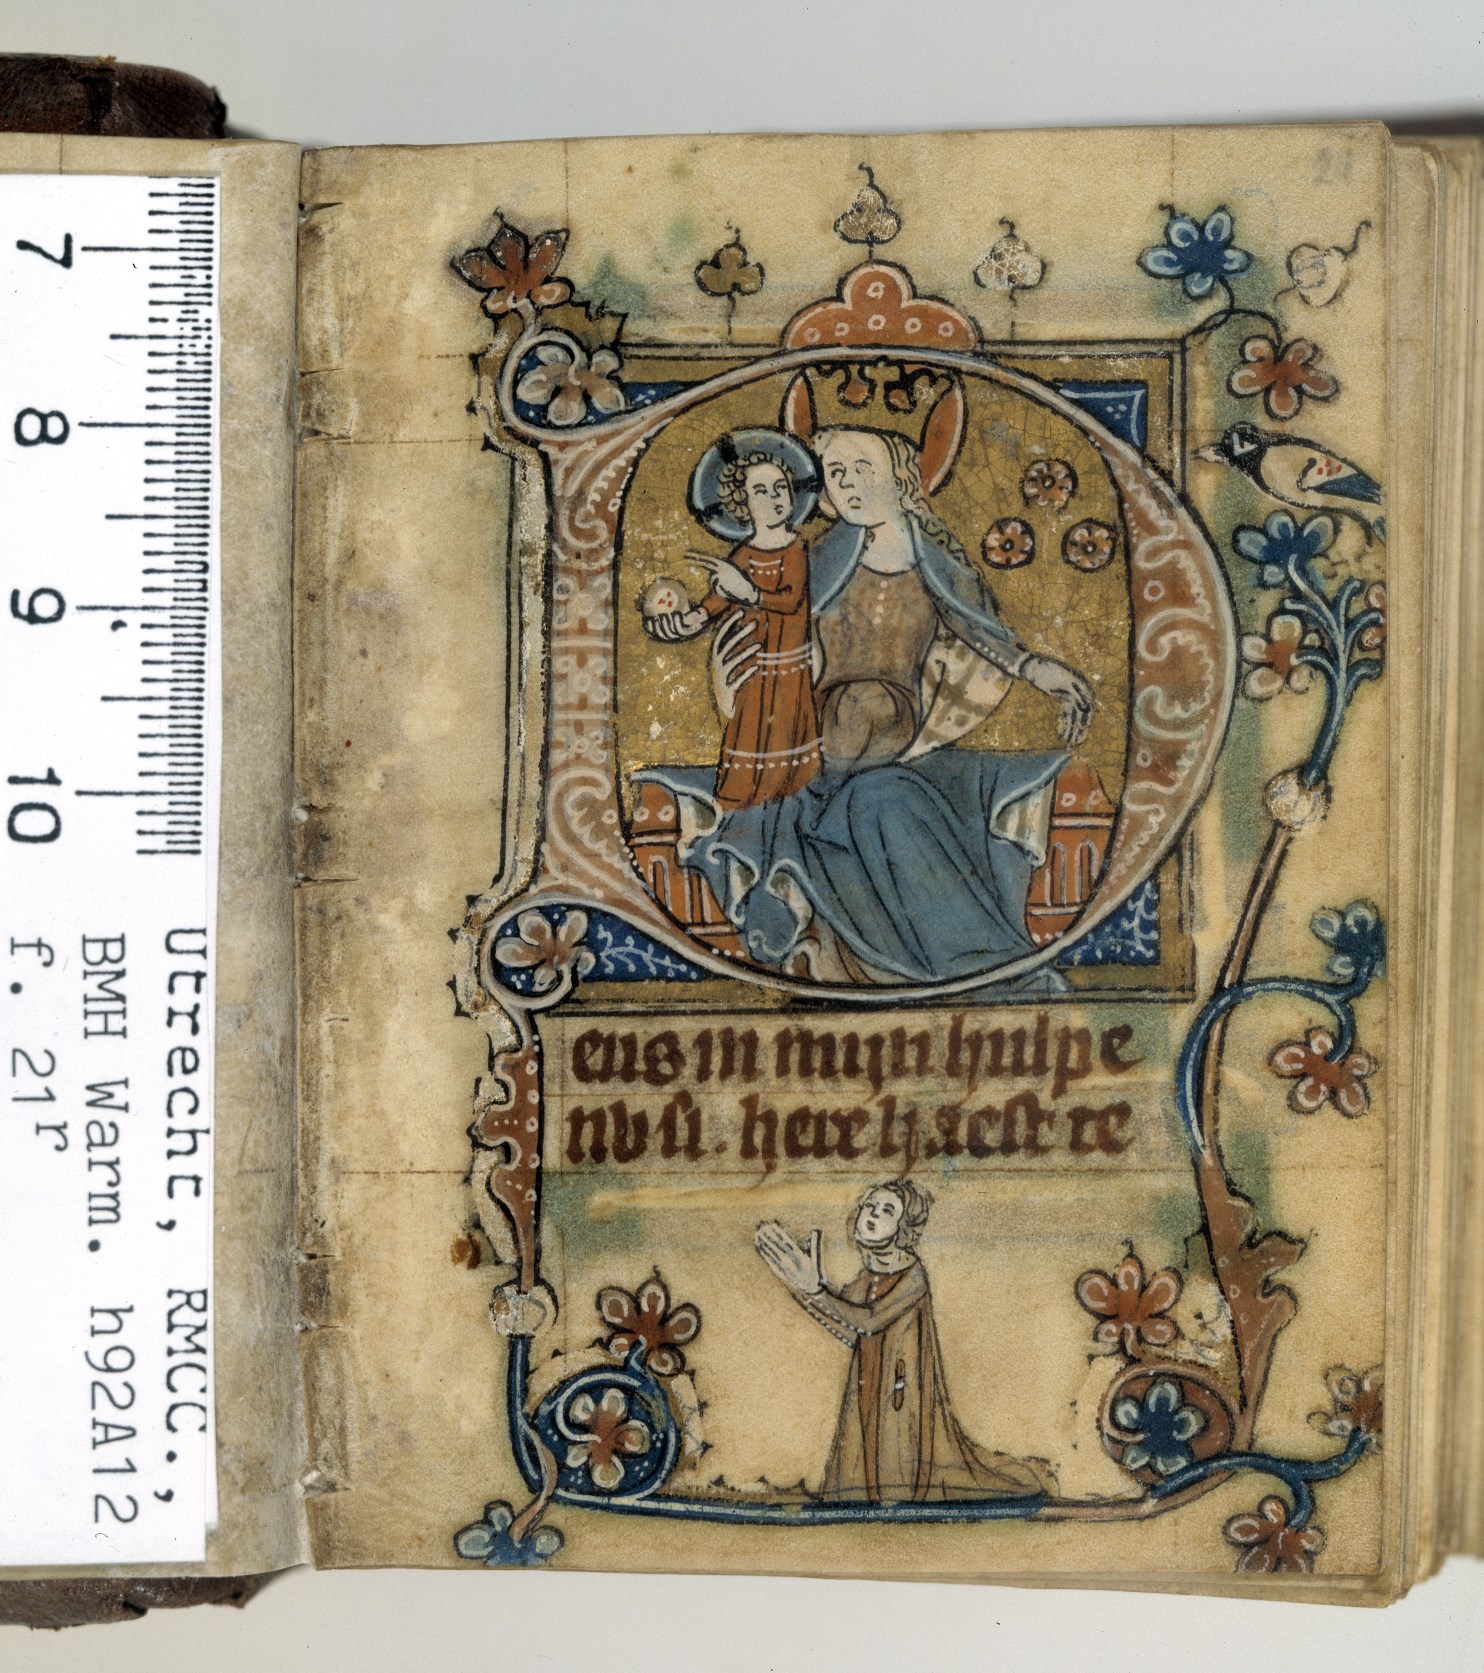 7
8
9
10
Utrecht, RMCC.,
BMH Warm. h92A12
f. 21r
21
D
eus in mijn hulpe
nv si. here haest te